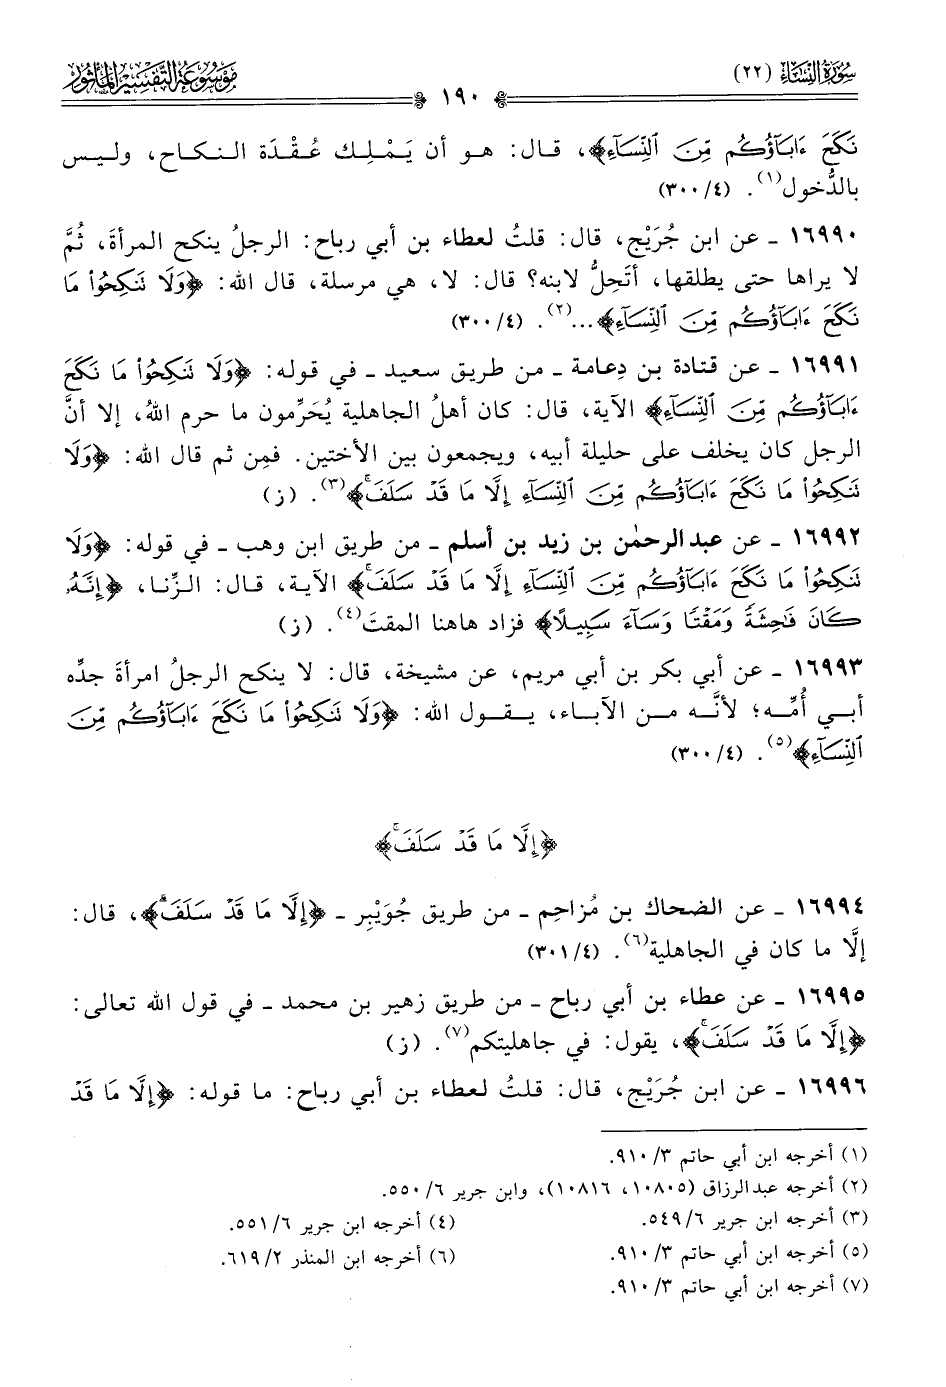 سُورَةُ النِّسَاءِ (٢٢)
١٩٠
مَوْسُوعَة التَّفْسِيرِ المَأْثُور
نَكَحَ ءَابَآؤُكُم مِّنَ ٱلنِّسَآءِ﴾، قال: هو أن يَمْلِك عُقْدَة النكاح، وليس
بالدُّخول(١). (٣٠٠/٤)
١٦٩٩٠ ـ عن ابن جُرَيْج، قال: قلتُ لعطاء بن أبي رباح: الرجلُ ينكح المرأةَ، ثُمَّ
لا يراها حتى يطلقها، أتَحِلُّ لابنه؟ قال: لا، هي مرسلة، قال الله: ﴿وَلَا تَنكِحُوا۟ مَا
نَكَحَ ءَابَآؤُكُم مِّنَ ٱلنِّسَآءِ﴾...(٢). (٣٠٠/٤)
١٦٩٩١ ـ عن قتادة بن دِعامة ـ من طريق سعيد ـ في قوله: ﴿وَلَا تَنكِحُوا۟ مَا نَكَحَ
ءَابَآؤُكُم مِّنَ ٱلنِّسَآءِ﴾ الآية، قال: كان أهلُ الجاهلية يُحَرِّمون ما حرم اللهُ، إلا أنَّ
الرجل كان يخلف على حليلة أبيه، ويجمعون بين الأختين. فمِن ثم قال الله: ﴿وَلَا
تَنكِحُوا۟ مَا نَكَحَ ءَابَآؤُكُم مِّنَ ٱلنِّسَآءِ إِلَّا مَا قَدْ سَلَفَۚ﴾(٣). (ز)
١٦٩٩٢ ـ عن عبدالرحمٰن بن زيد بن أسلم ـ من طريق ابن وهب ـ في قوله: ﴿وَلَا
تَنكِحُوا۟ مَا نَكَحَ ءَابَآؤُكُم مِّنَ ٱلنِّسَآءِ إِلَّا مَا قَدْ سَلَفَۚ﴾ الآية، قال: الزِّنا، ﴿إِنَّهُۥ
كَانَ فَٰحِشَةً وَمَقْتًا وَسَآءَ سَبِيلًا﴾ فزاد هاهنا المقتَ(٤). (ز)
١٦٩٩٣ ـ عن أبي بكر بن أبي مريم، عن مشيخة، قال: لا ينكح الرجلُ امرأةَ جدِّه
أبي أُمِّه؛ لأنَّه من الآباء، يقول الله: ﴿وَلَا تَنكِحُوا۟ مَا نَكَحَ ءَابَآؤُكُم مِّنَ
ٱلنِّسَآءِ﴾(٥). (٣٠٠/٤)
﴿إِلَّا مَا قَدْ سَلَفَۚ﴾
١٦٩٩٤ ـ عن الضحاك بن مُزاحِم ـ من طريق جُوَيْبِر ـ ﴿إِلَّا مَا قَدْ سَلَفَۚ﴾، قال:
إلَّا ما كان في الجاهلية(٦). (٣٠١/٤)
١٦٩٩٥ ـ عن عطاء بن أبي رباح ـ من طريق زهير بن محمد ـ في قول الله تعالى:
﴿إِلَّا مَا قَدْ سَلَفَۚ﴾، يقول: في جاهليتكم(٧). (ز)
١٦٩٩٦ ـ عن ابن جُرَيْج، قال: قلتُ لعطاء بن أبي رباح: ما قوله: ﴿إِلَّا مَا قَدْ
(١) أخرجه ابن أبي حاتم ٩١٠/٣.
(٢) أخرجه عبدالرزاق (١٠٨٠٥، ١٠٨١٦)، وابن جرير ٥٥٠/٦.
(٣) أخرجه ابن جرير ٥٤٩/٦. (٤) أخرجه ابن جرير ٥٥١/٦.
(٥) أخرجه ابن أبي حاتم ٩١٠/٣. (٦) أخرجه ابن المنذر ٦١٩/٢.
(٧) أخرجه ابن أبي حاتم ٩١٠/٣.